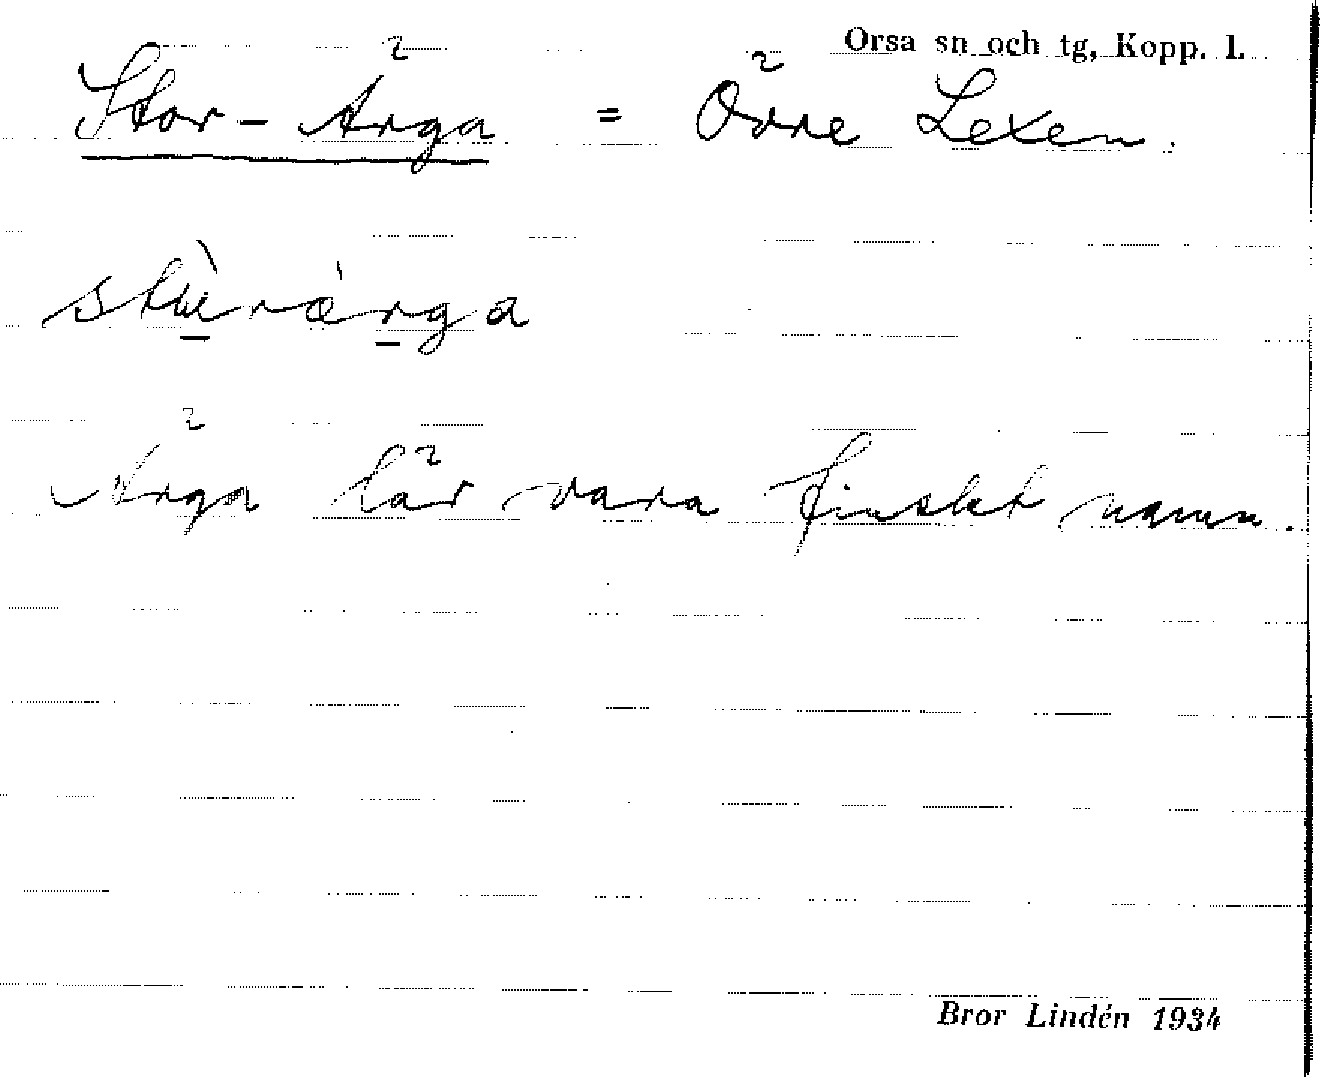 Orsa sn och tg, Kopp. l.
Stor-Ärga = Övre Lexen.
stùrä́rga
Ärga lär vara finskt namn.
Bror Lindén 1934